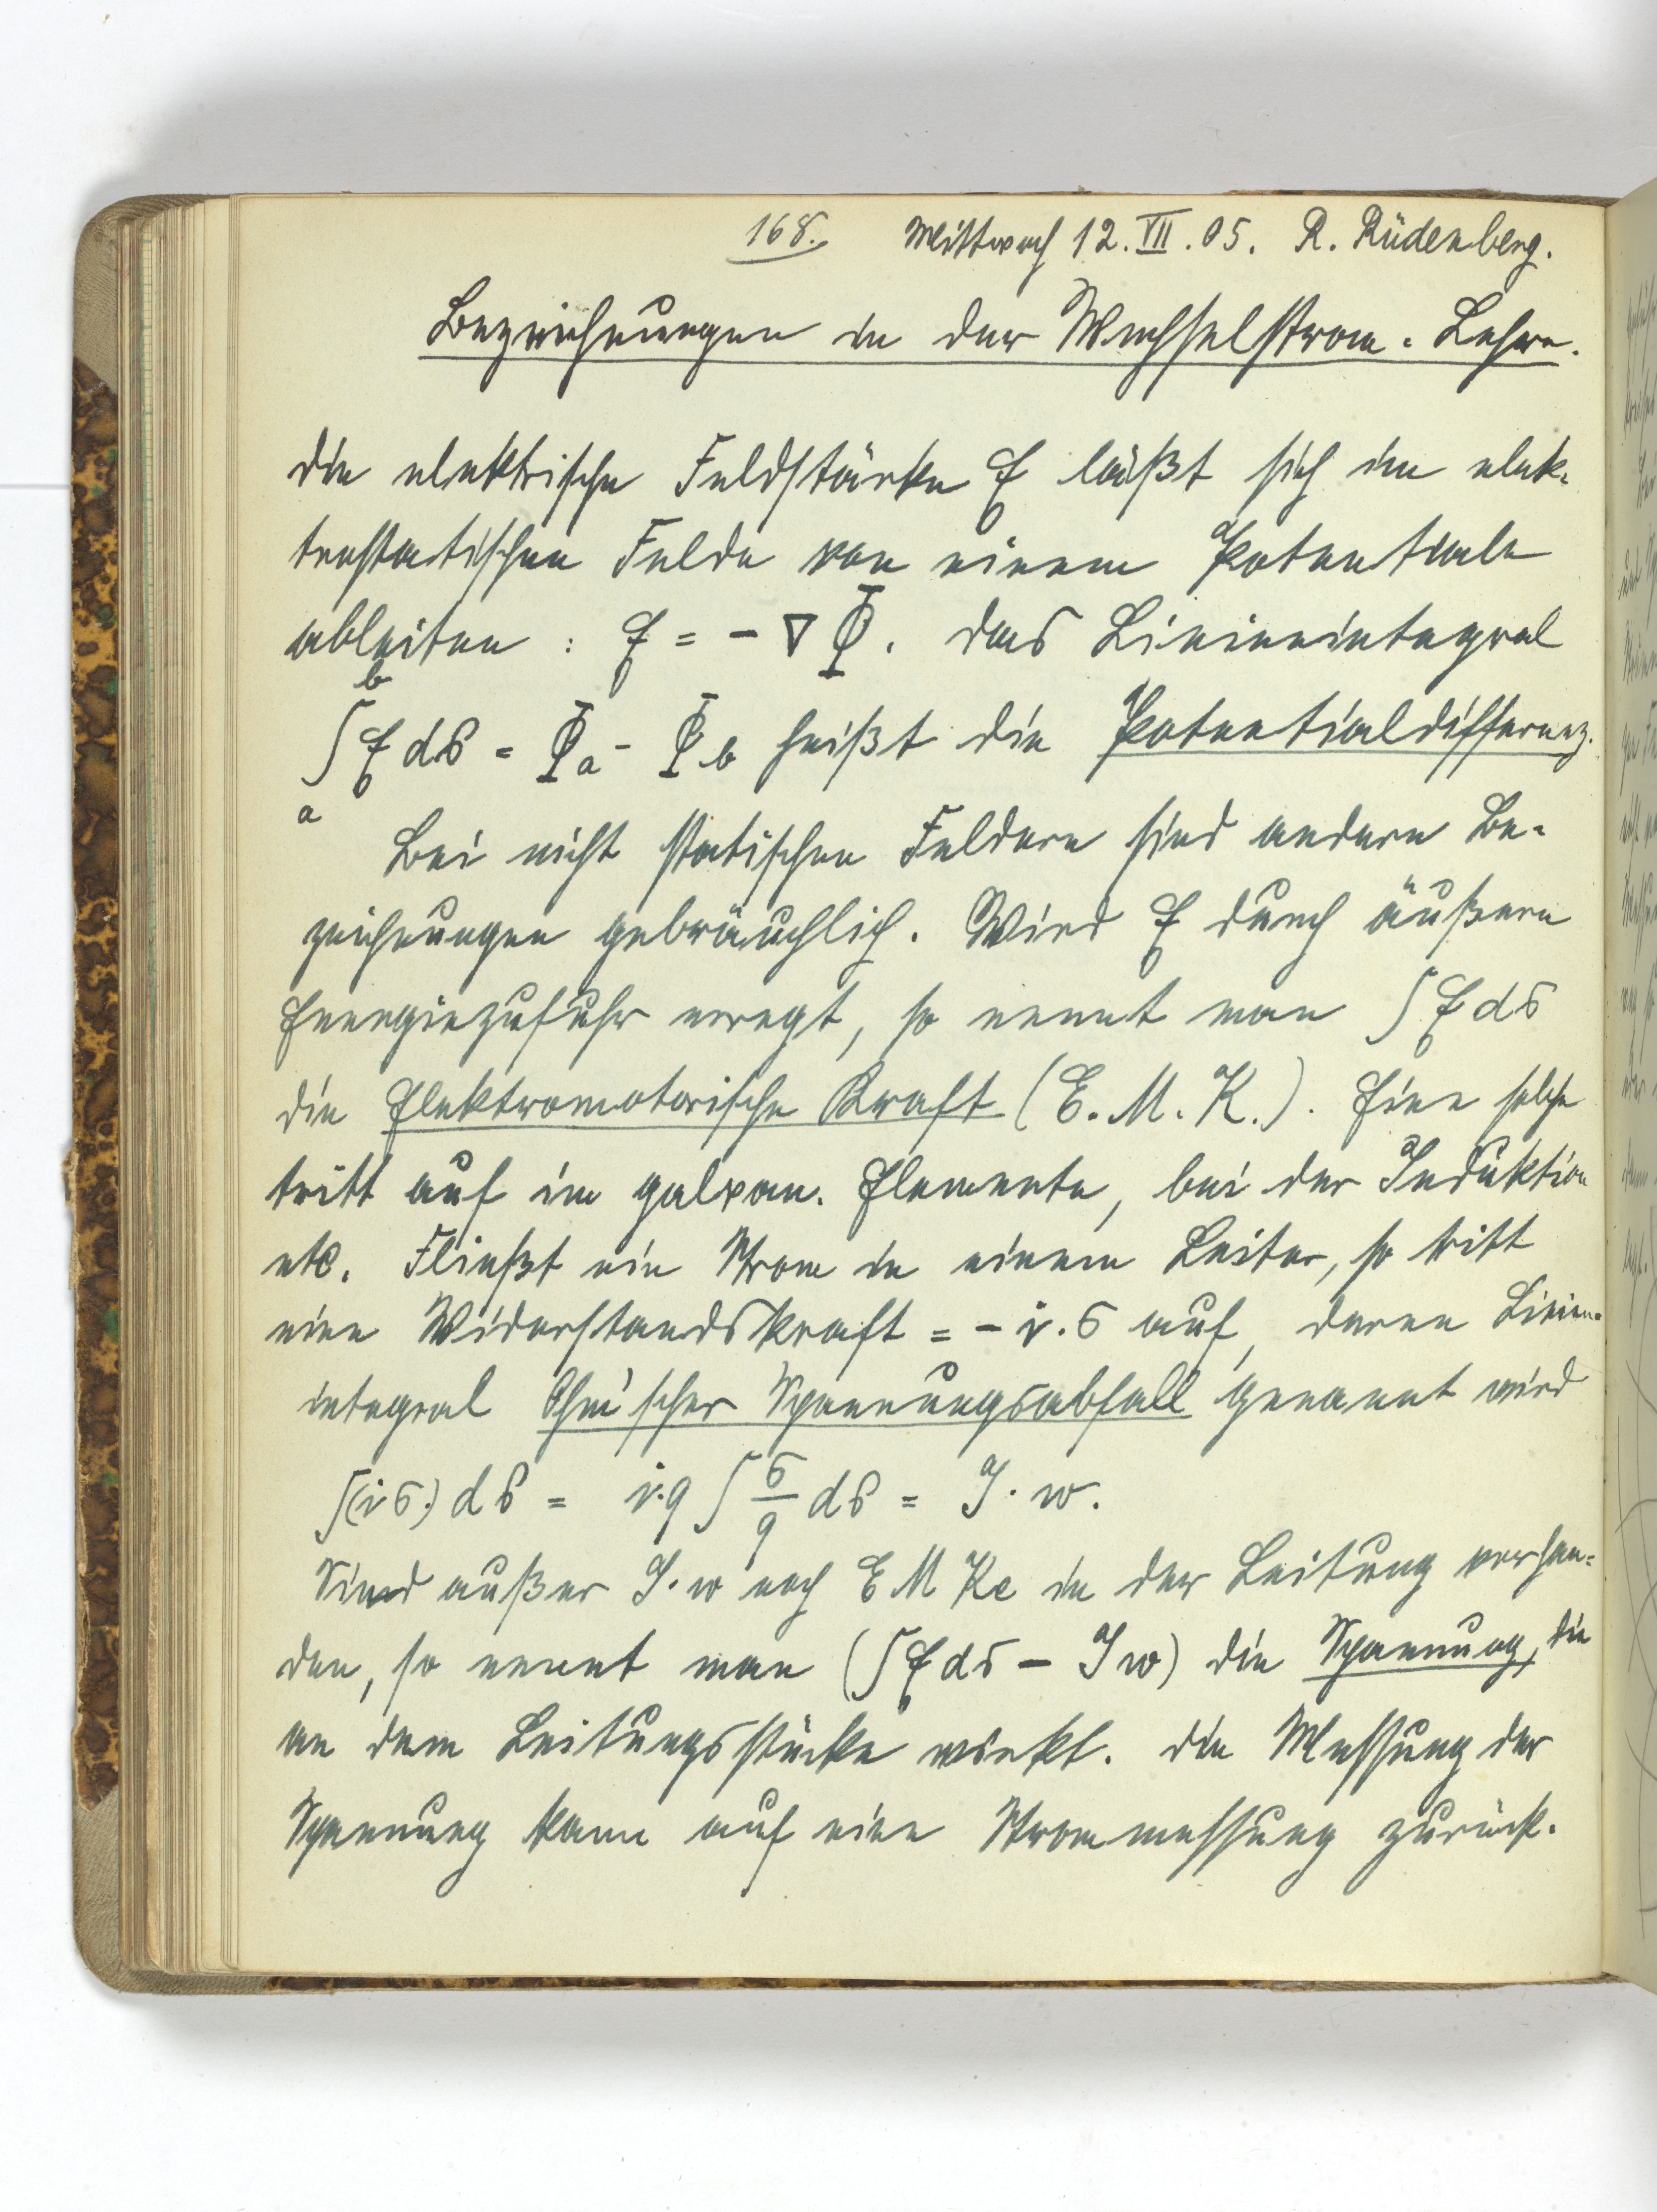 168. Mittwoch 12. VII. 05. R. Rüdenberg.
Bezeichnungen in der Wechselstrom-Lehre.
Die elektrische Feldstärke E läßt sich im elek-
trostatischen Felde von einem Potentiale
ableiten : E = - ∇ Φ. Das Linienintegral
∫ₐᵇ E ds = Φa - Φb heißt die Potentialdifferenz.
Bei nicht statischen Feldern sind andere Be-
zeichnungen gebräuchlich. Wird E durch äußere
Energiezufuhr erregt, so nennt man ∫ E ds
die Elektromotorische Kraft (E. M. K.). Eine solche
tritt auf im galvan. Elemente, bei der Induktion
etc. Fließt ein Strom in einem Leiter, so tritt
eine Widerstandskraft = - i . σ auf, deren Linien-
integral Ohm'scher Spannungsabfall genannt wird
∫(i σ.) ds = i.q ∫ σ/q ds = J . w.
Sind außer J . w noch E M Ke in der Leitung vorhan-
den, so nennt man (∫ E ds - J w) die Spannung, die
an dem Leitungsstücke wirkt. Die Messung der
Spannung kann auf eine Strommessung zurück-